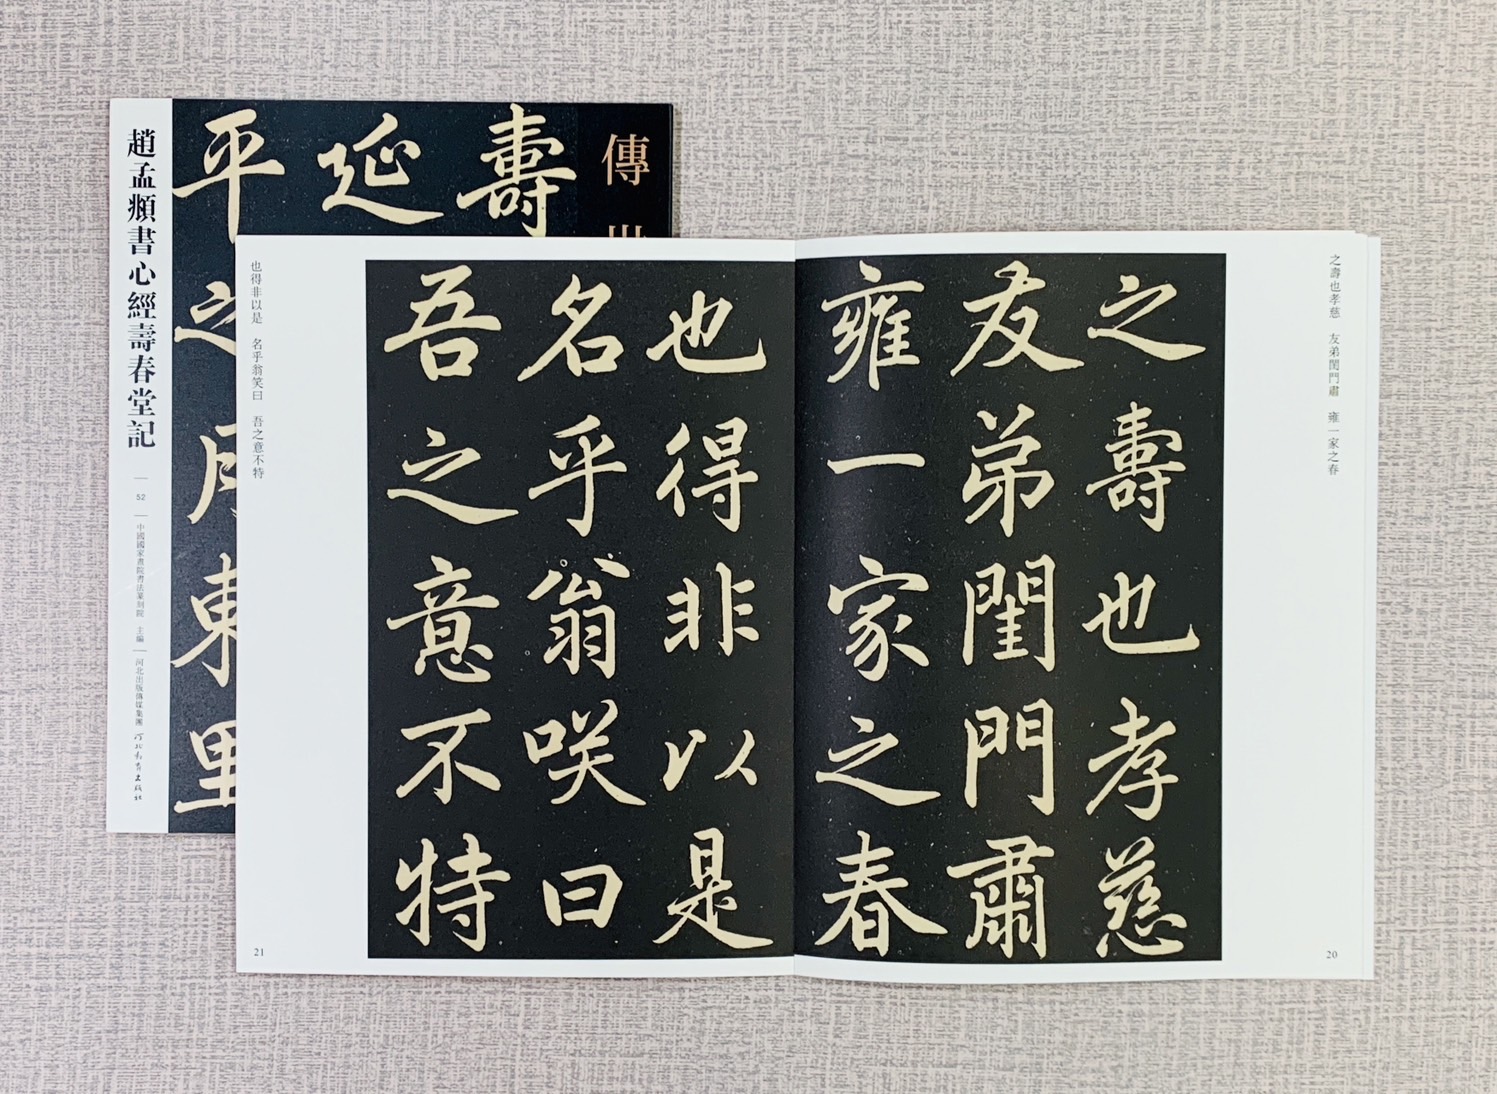 趙孟頫書心經壽春堂記
52
中國國家畫院書法篆刻院 主編
河北出版傳媒集團 河北教育出版社
傳
壽
延
平之月東里
之壽也孝慈
友弟閨門肅
雍一家之春
之壽也孝慈 友弟閨門肅 雍一家之春
20
也得非以是
名乎翁咲曰
吾之意不特
也得非以是 名乎翁笑曰 吾之意不特
21